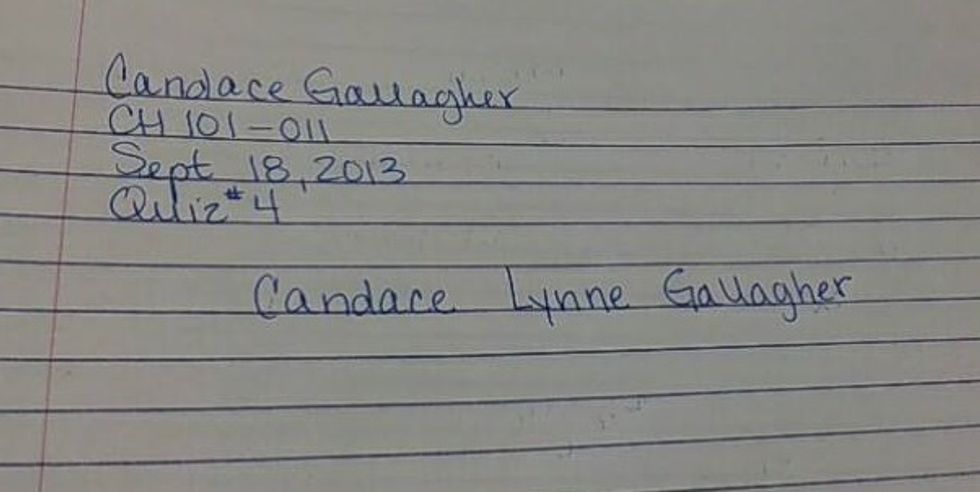 Candace Gallagher
CH 101-011
Sept 18, 2013
Quiz #4
Candace Lynne Gallagher